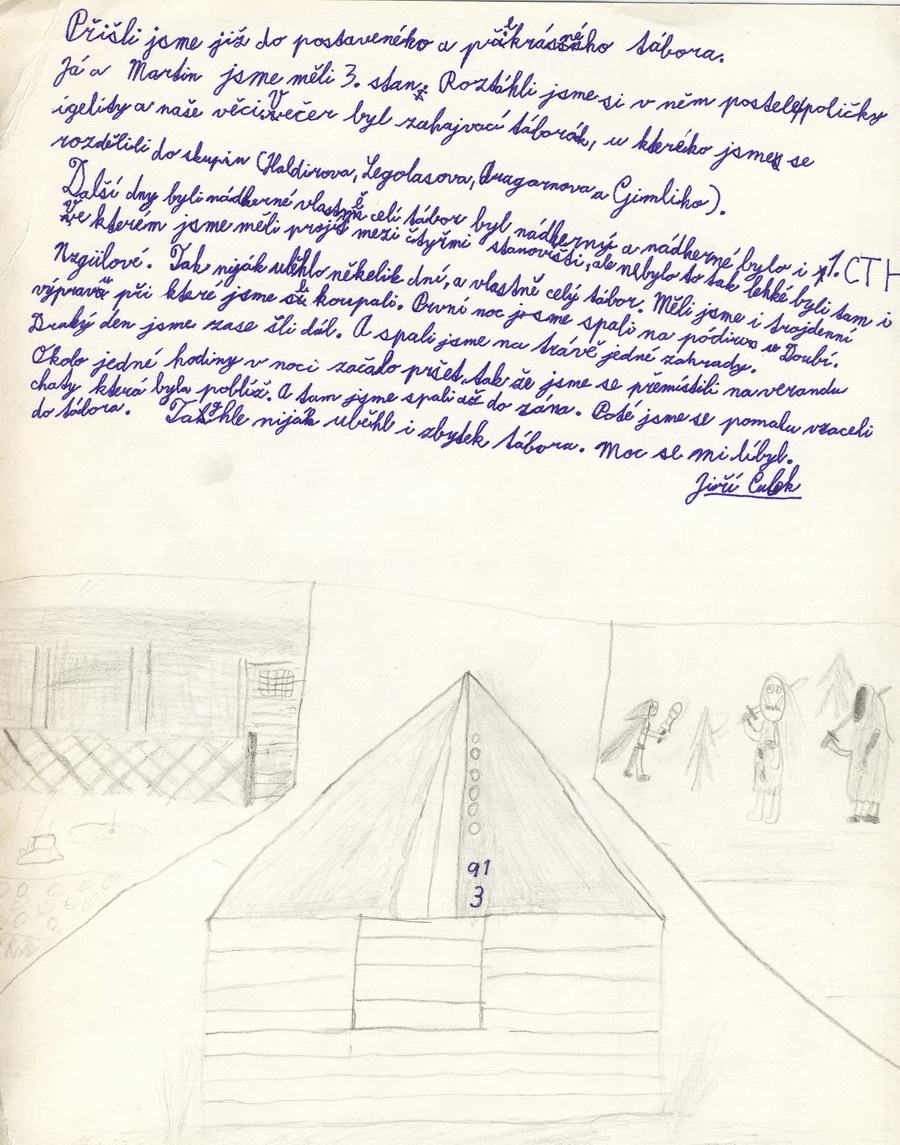 Přišli jsme již do postaveného a překrásného tábora.
Já a Martin jsme měli 3. stan. Roztáhli jsme si v něm postele, poličky
igelity a naše věci. Večer byl zahajvací táborák, u kteréko jsme se
rozdělili do skupin (Haldirova, Legolasova, Aragarnova a Gimliho).
Další dny byli nádherné vlastně celí tábor byl nádherný a nádherné bylo i 1. CTH
ve kterém jsme měli projít mezi čtyřmi stanovišti, ale nebylo to tak lehké byli tam i
Nzgülové. Tak niják uběhlo někelik dní, a vlastně celý tábor. Měli jsme i trojdenní
výpravu při které jsme se koupali. První noc jsme spali na pódiu u Doubí.
Druhý den jsme zase šli dál. A spali jsme na trávě jedné zahrady.
Okolo jedné hodiny v noci začalo pršet, tak že jsme se přemístili na verandu
chaty která byla poblíž. A tam jsme spali až do rána. Poté jsme se pomalu vraceli
do tábora. Takhle niják uběhl i zbytek tábora. Moc se mi líbyl.
Jiří Culek
91
3